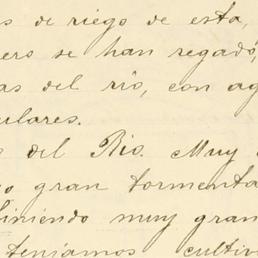 s de riego de esta,
ero se han regado,
as del río, con ag
ulares.
del Rio. Muy
o gran tormenta
biniendo muy gran
teníamos cultiv